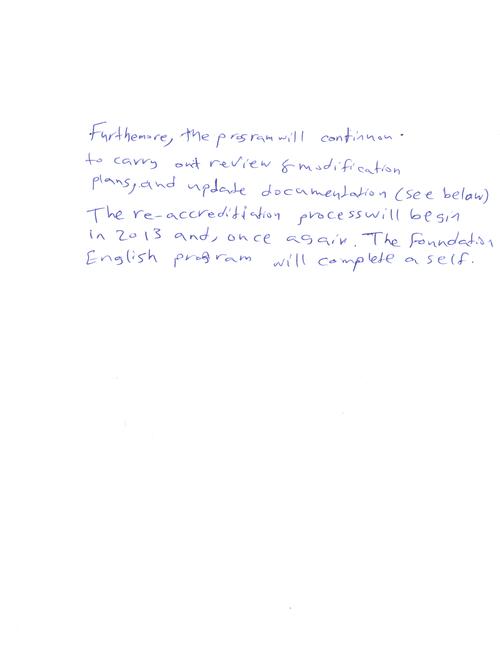 Furthemore, the program will continuon.
to carry out review & modification
plans, and update documentation (see below)
The re-accreditiation process will begin
in 2013 and, once again. The Foundation
English program will complete a self.